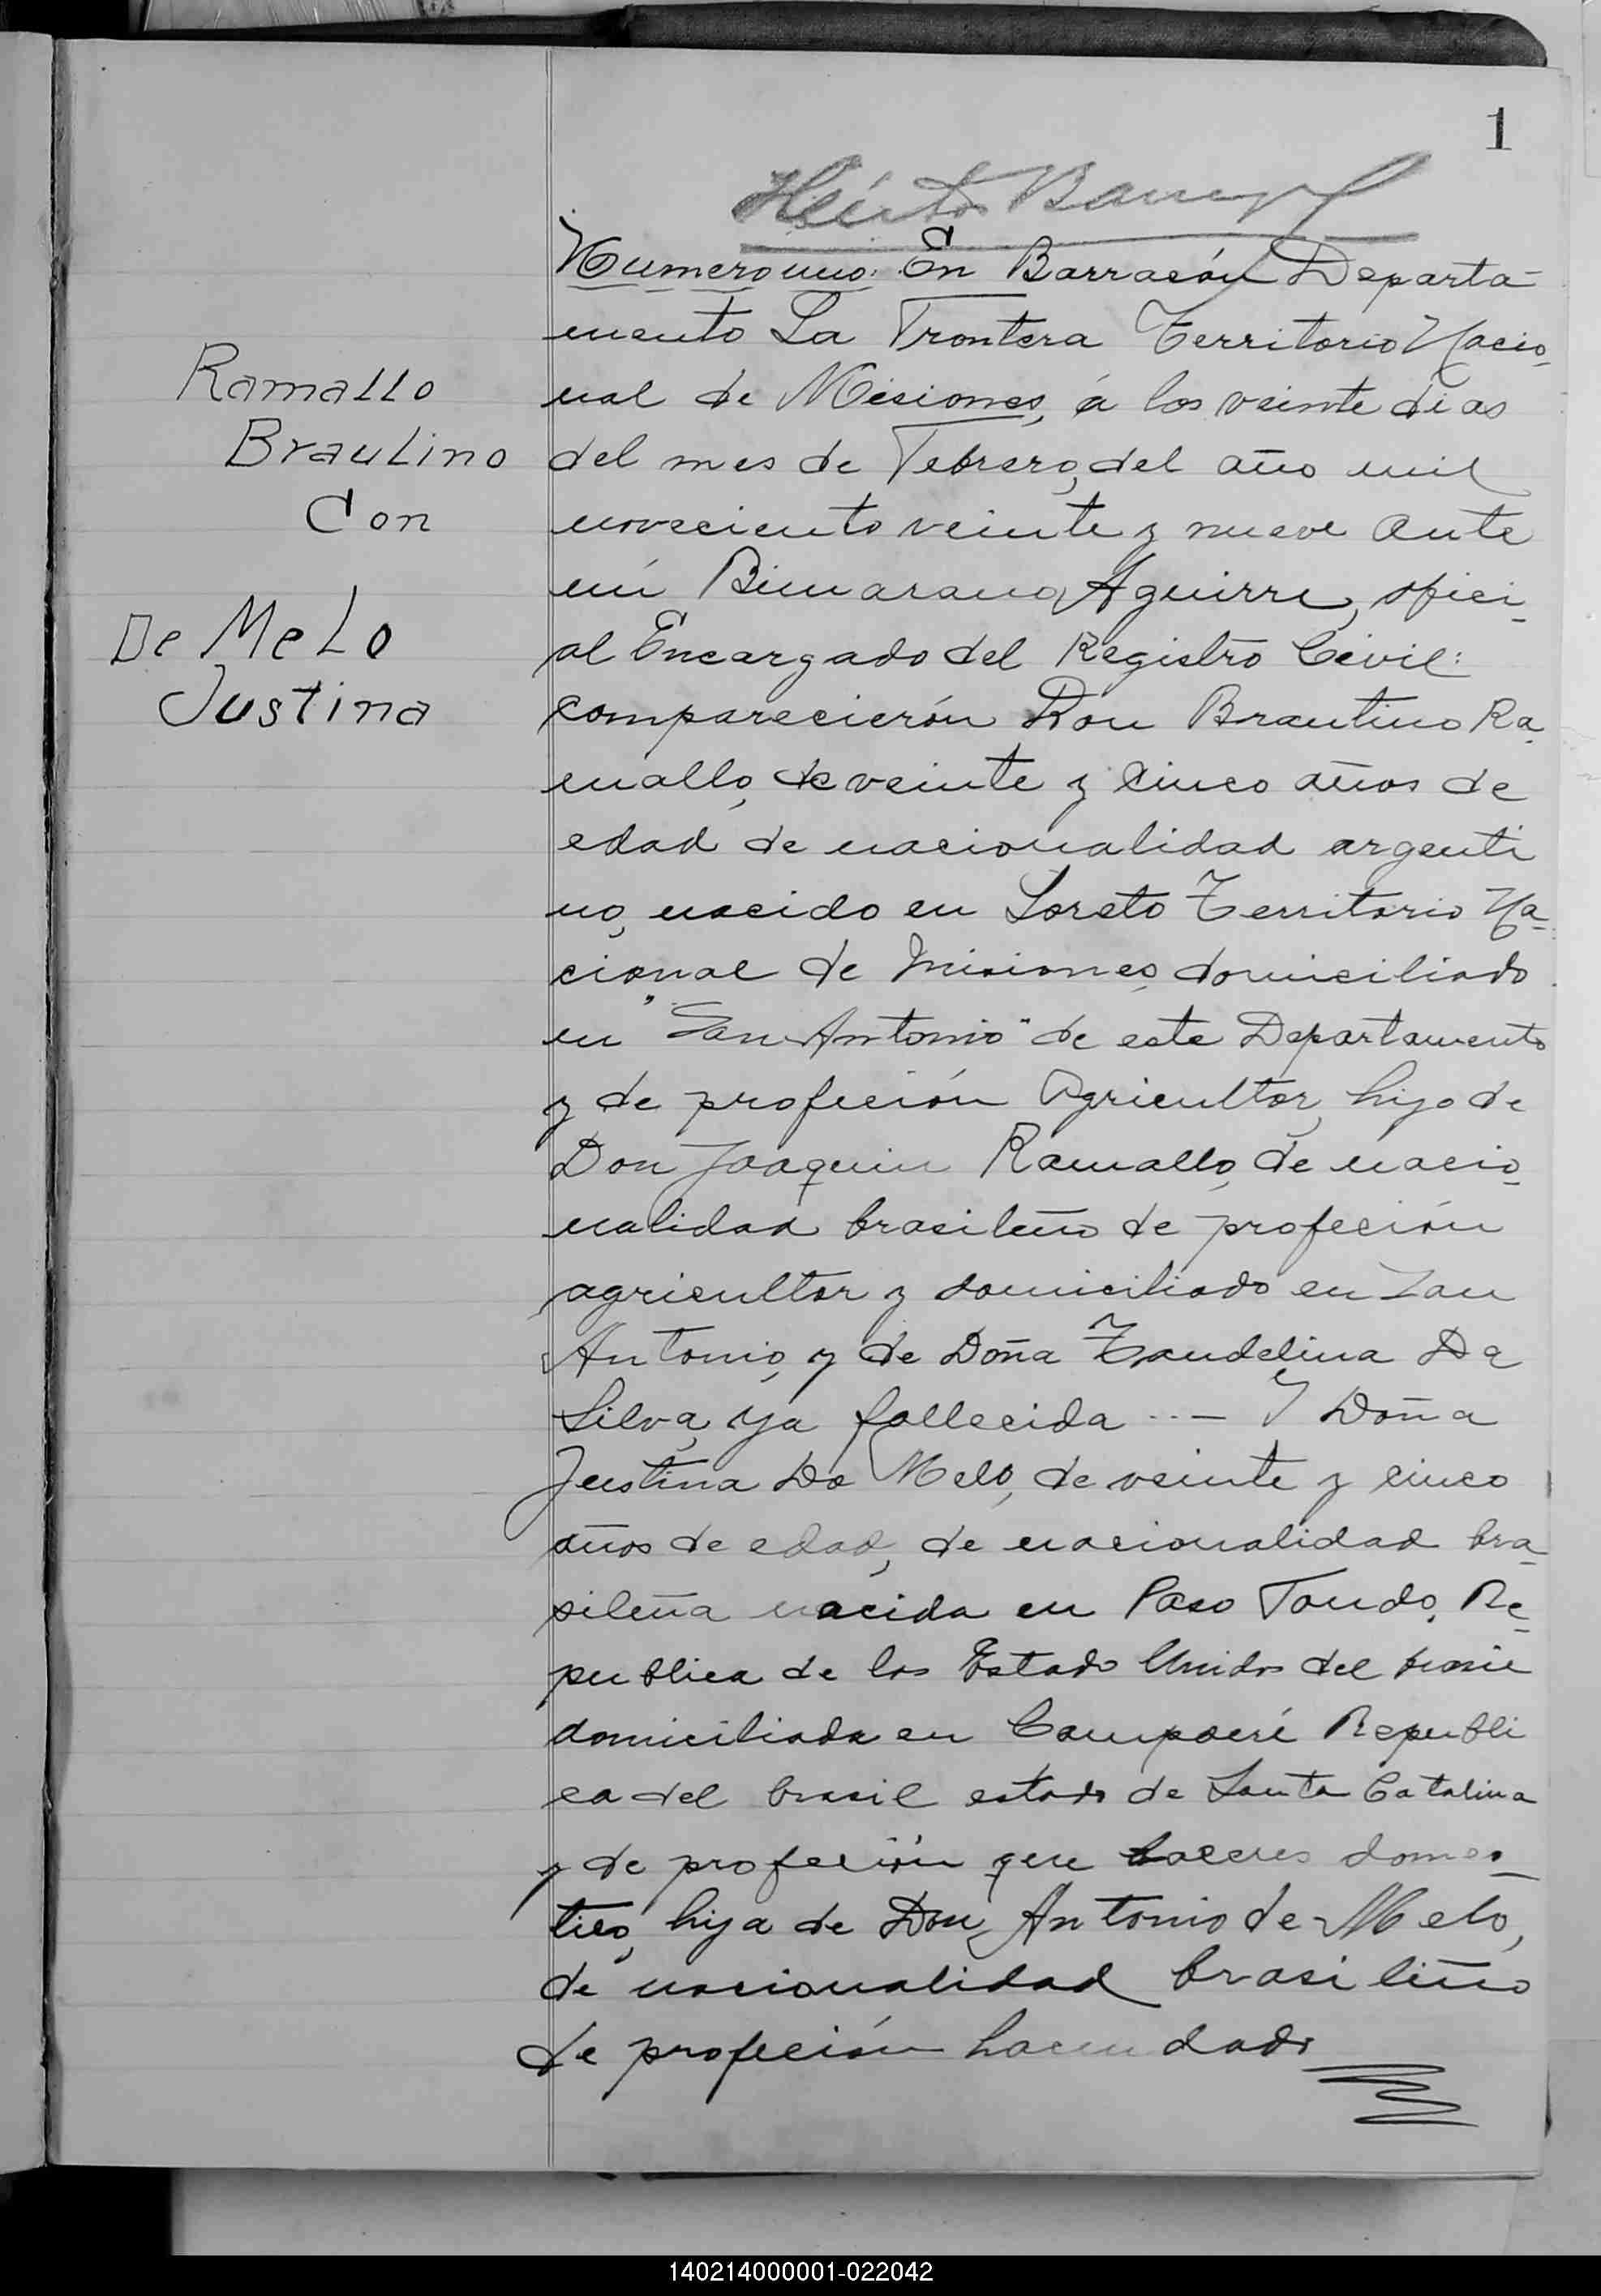 1
Numero uno: En Barracón Departa-
mento La Frontera Territorio Nacio-
nal de Misiones, á los veinte dias
del mes de Febrero, del año mil
noveciento veinte y nueve ante
mí Aguirre, ofici-
al Encargado del Registro Civil:
comparecierón Don Brautino Ra-
mallo, de veinte y cinco años de
edad de nacionalidad argenti
no, nacido en Loreto Territorio Na-
cional de Misiones, domiciliado
en "San Antonio" de este Departamento
y de profeción Agricultor, hijo de
Don Joaquin Ramallo, de nacio-
nalidad brasileño de profeción
agricultor y domiciliado en San
Antonio, y de Doña Da
Silva, ya fallecida - Y Doña
Justina De Melo, de veinte y cinco
años de edad, de nacionalidad bra-
sileña nacida en Paso Fondo, Re-
publica de los Estado Unidos del
domiciliada en Campoeré Republi
ca del brasil estado de Santa Catalina
y de profeción que haceres domes-
tico, hija de Don Antonio de Melo,
de nacionalidad brasileño
de profeción hacendado
Ramallo
Braulino
Con
De Melo
Justina
140214000001-022042